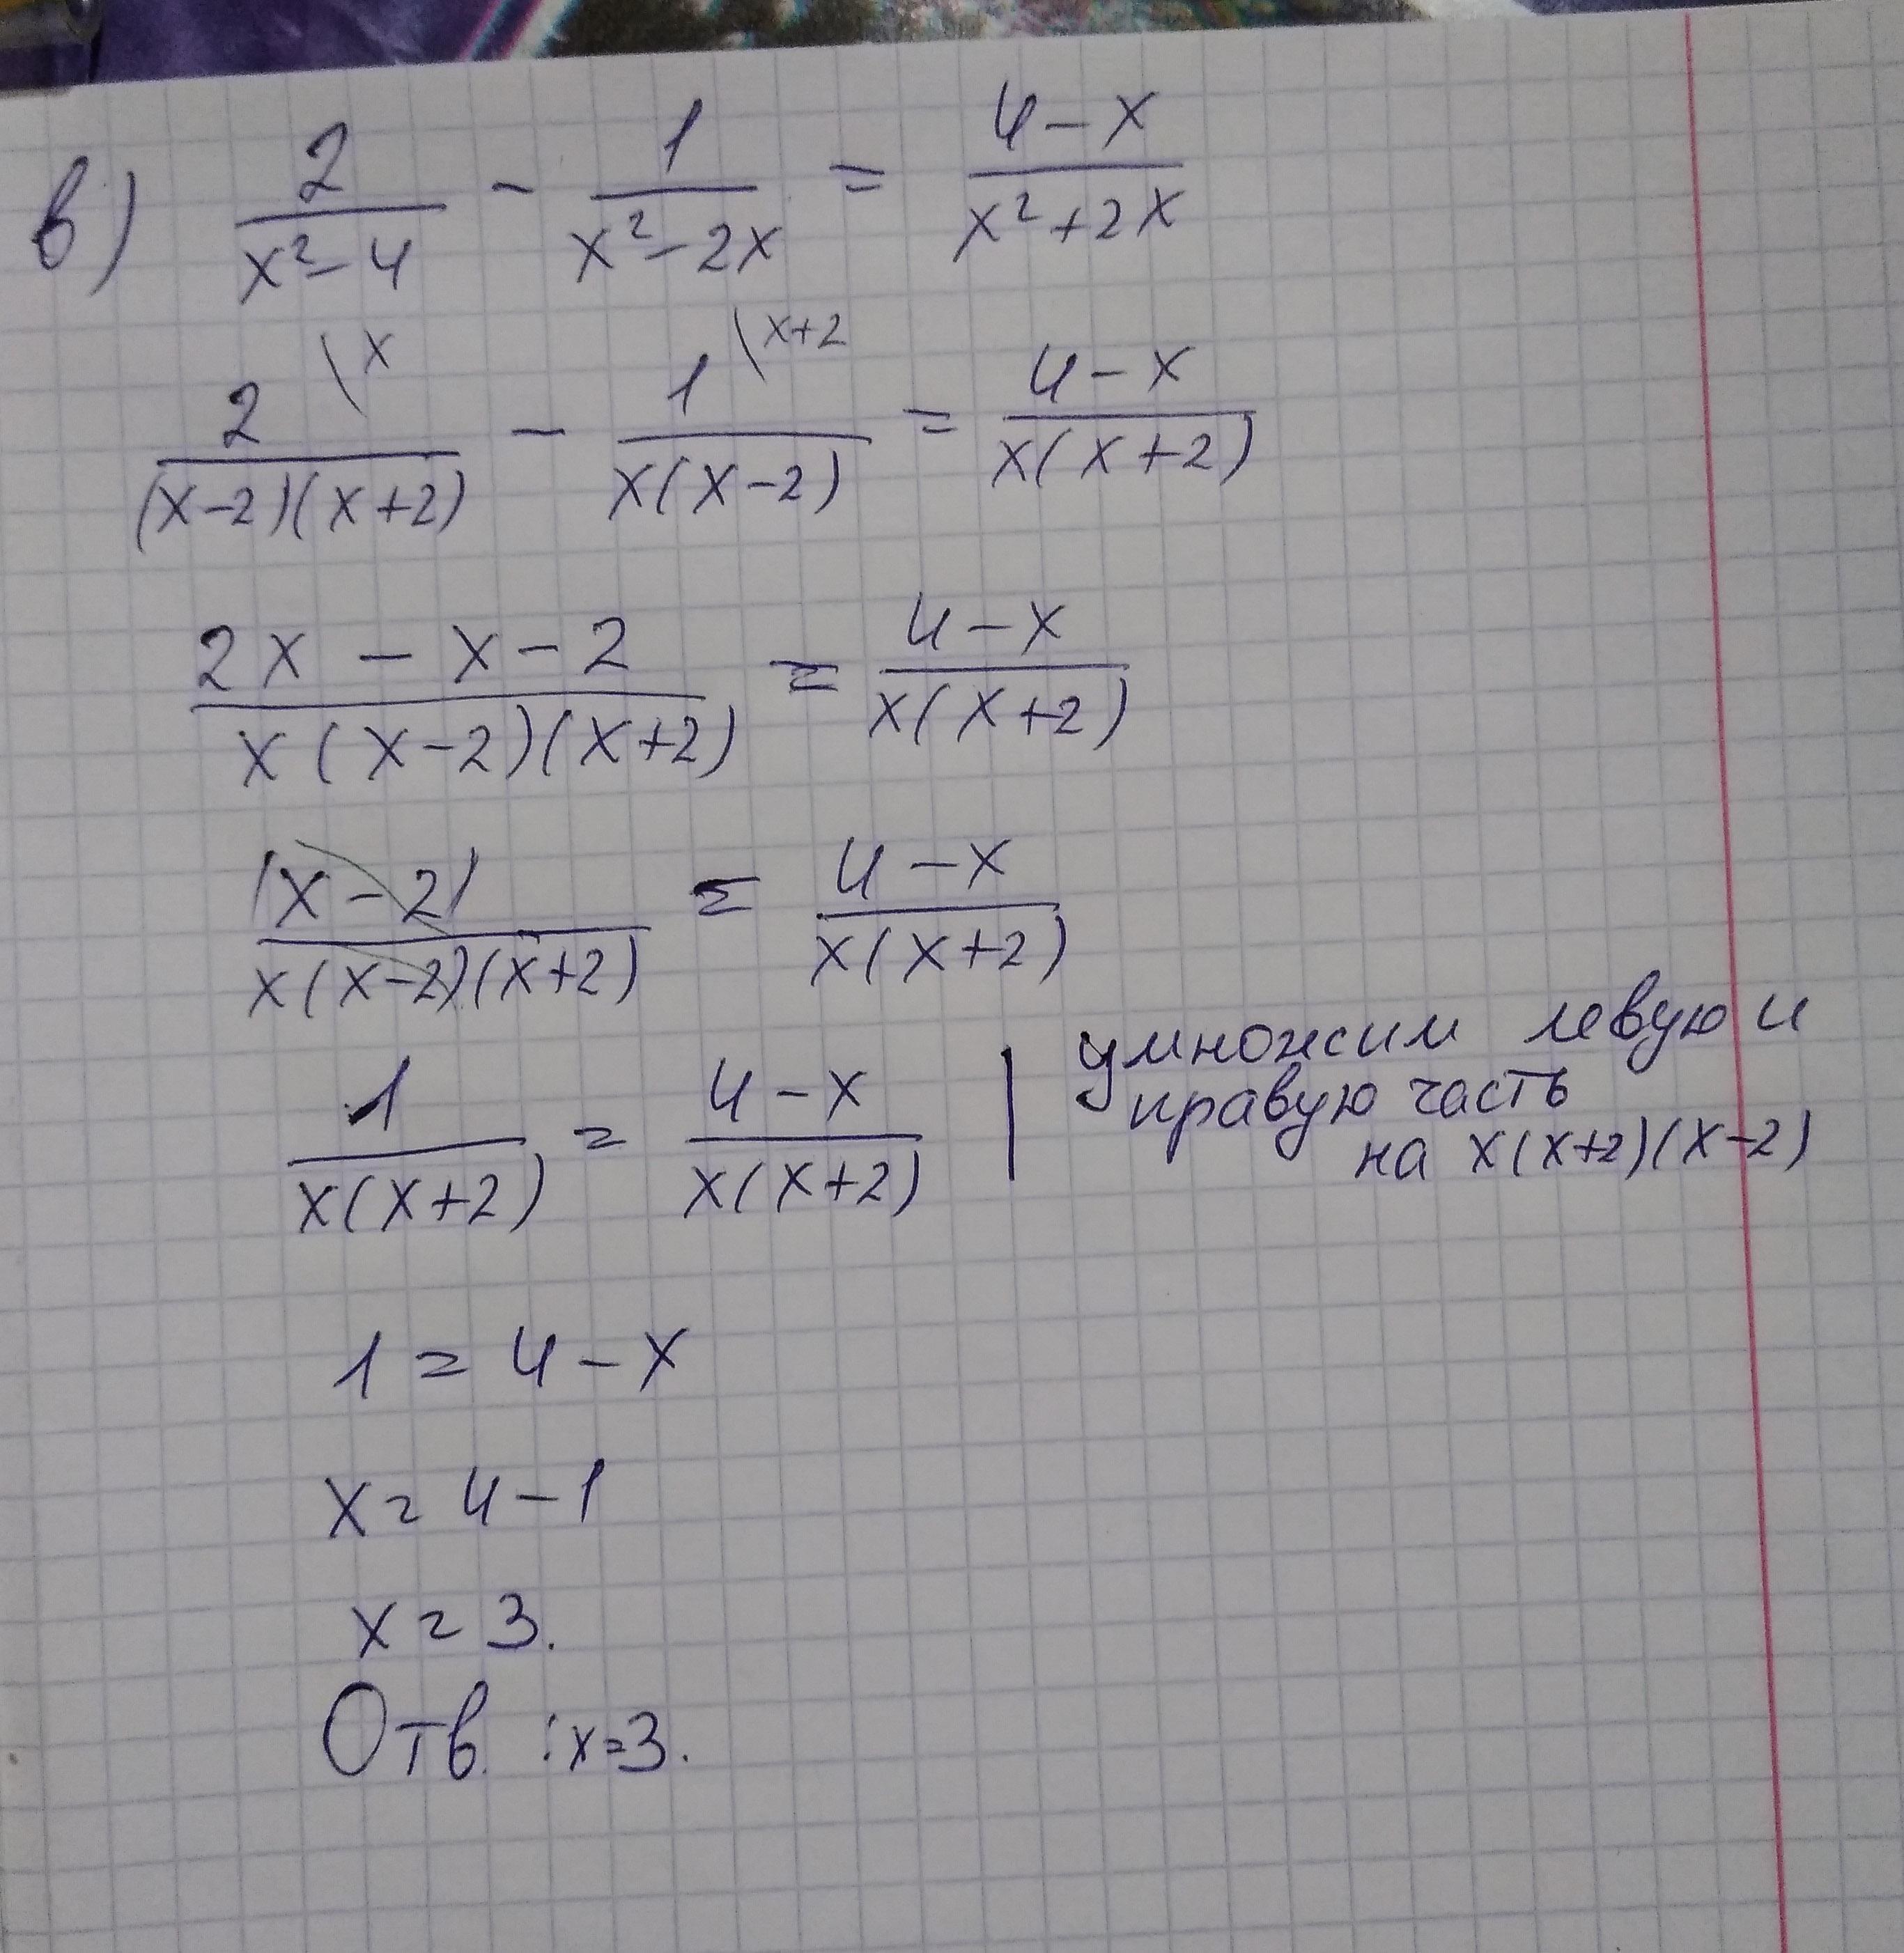 в) 2/(x²-4) - 1/(x²-2x) = (4-x)/(x²+2x)
2\x/((x-2)(x+2)) - 1\x+2/(x(x-2)) = (4-x)/(x(x+2))
(2x - x - 2)/(x(x-2)(x+2)) = (4-x)/(x(x+2))
(x-2)/(x(x-2)(x+2)) = (4-x)/(x(x+2))
1/(x(x+2)) = (4-x)/(x(x+2)) | умножим левую и
правую часть
на x(x+2)(x-2)
1 = 4 - x
x = 4 - 1
x = 3.
Отв. : x = 3.